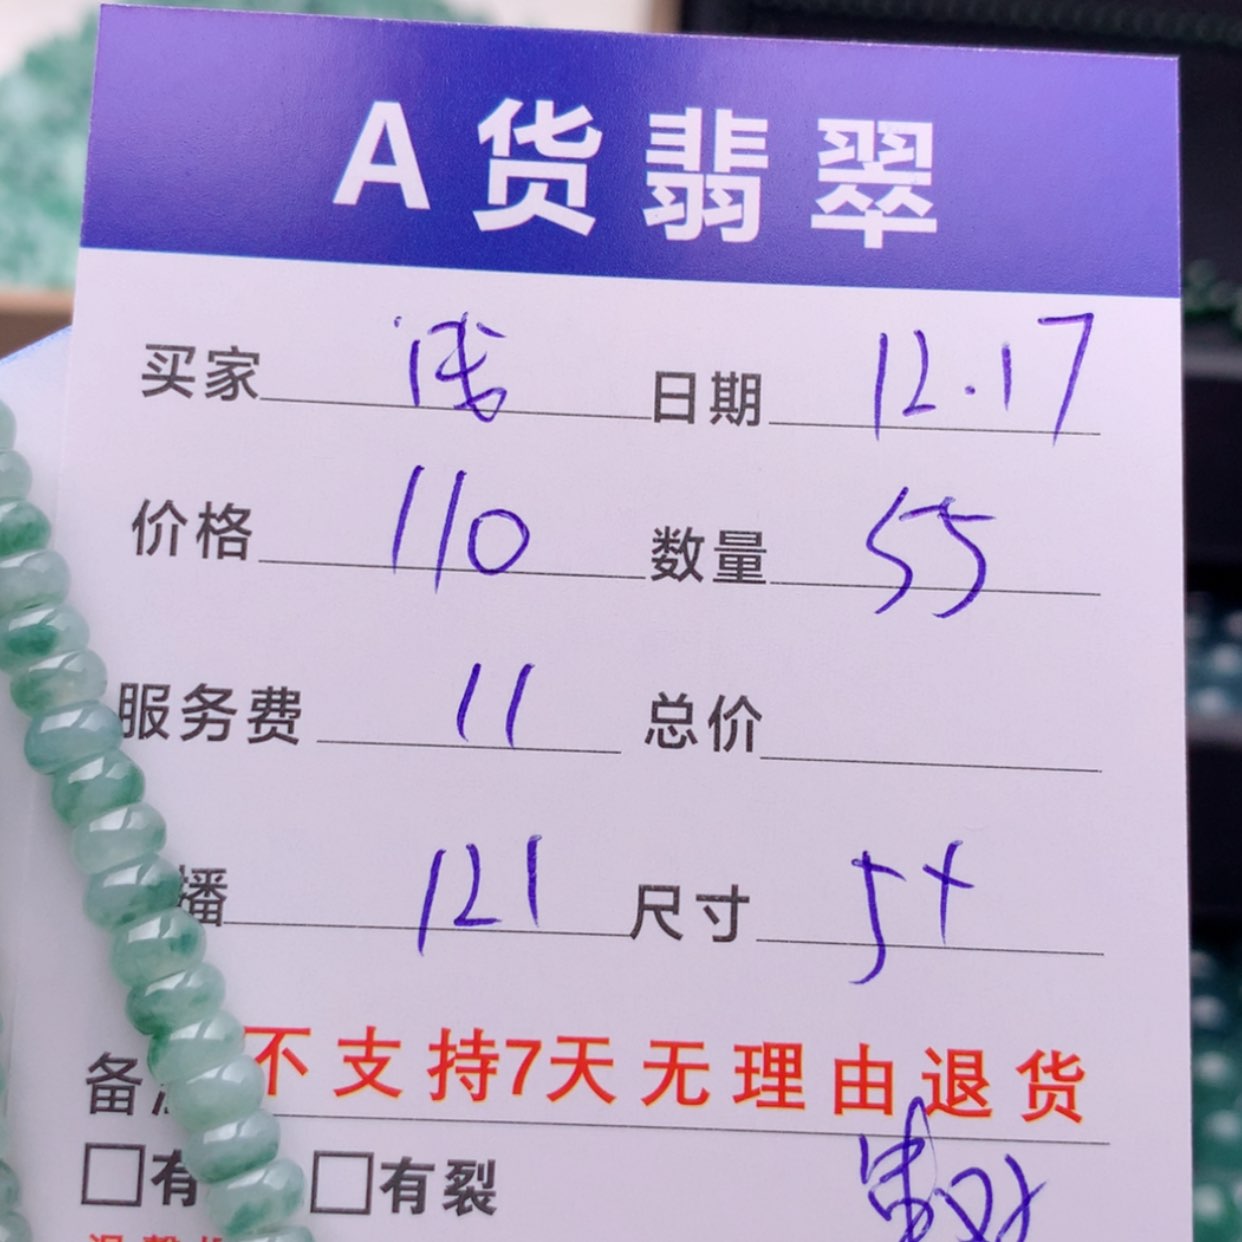 A货翡翠
买家 浅 日期 12.17
价格 110 数量 55
服务费 11 总价
播 121 尺寸 5+
备 不支持7天无理由退货
□有 □有裂